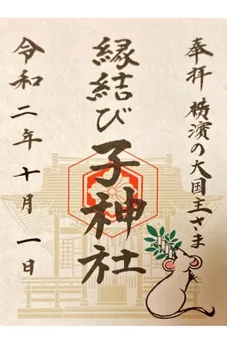 奉拝 横濱の大国主さま
縁結び子神社
令和二年十月一日